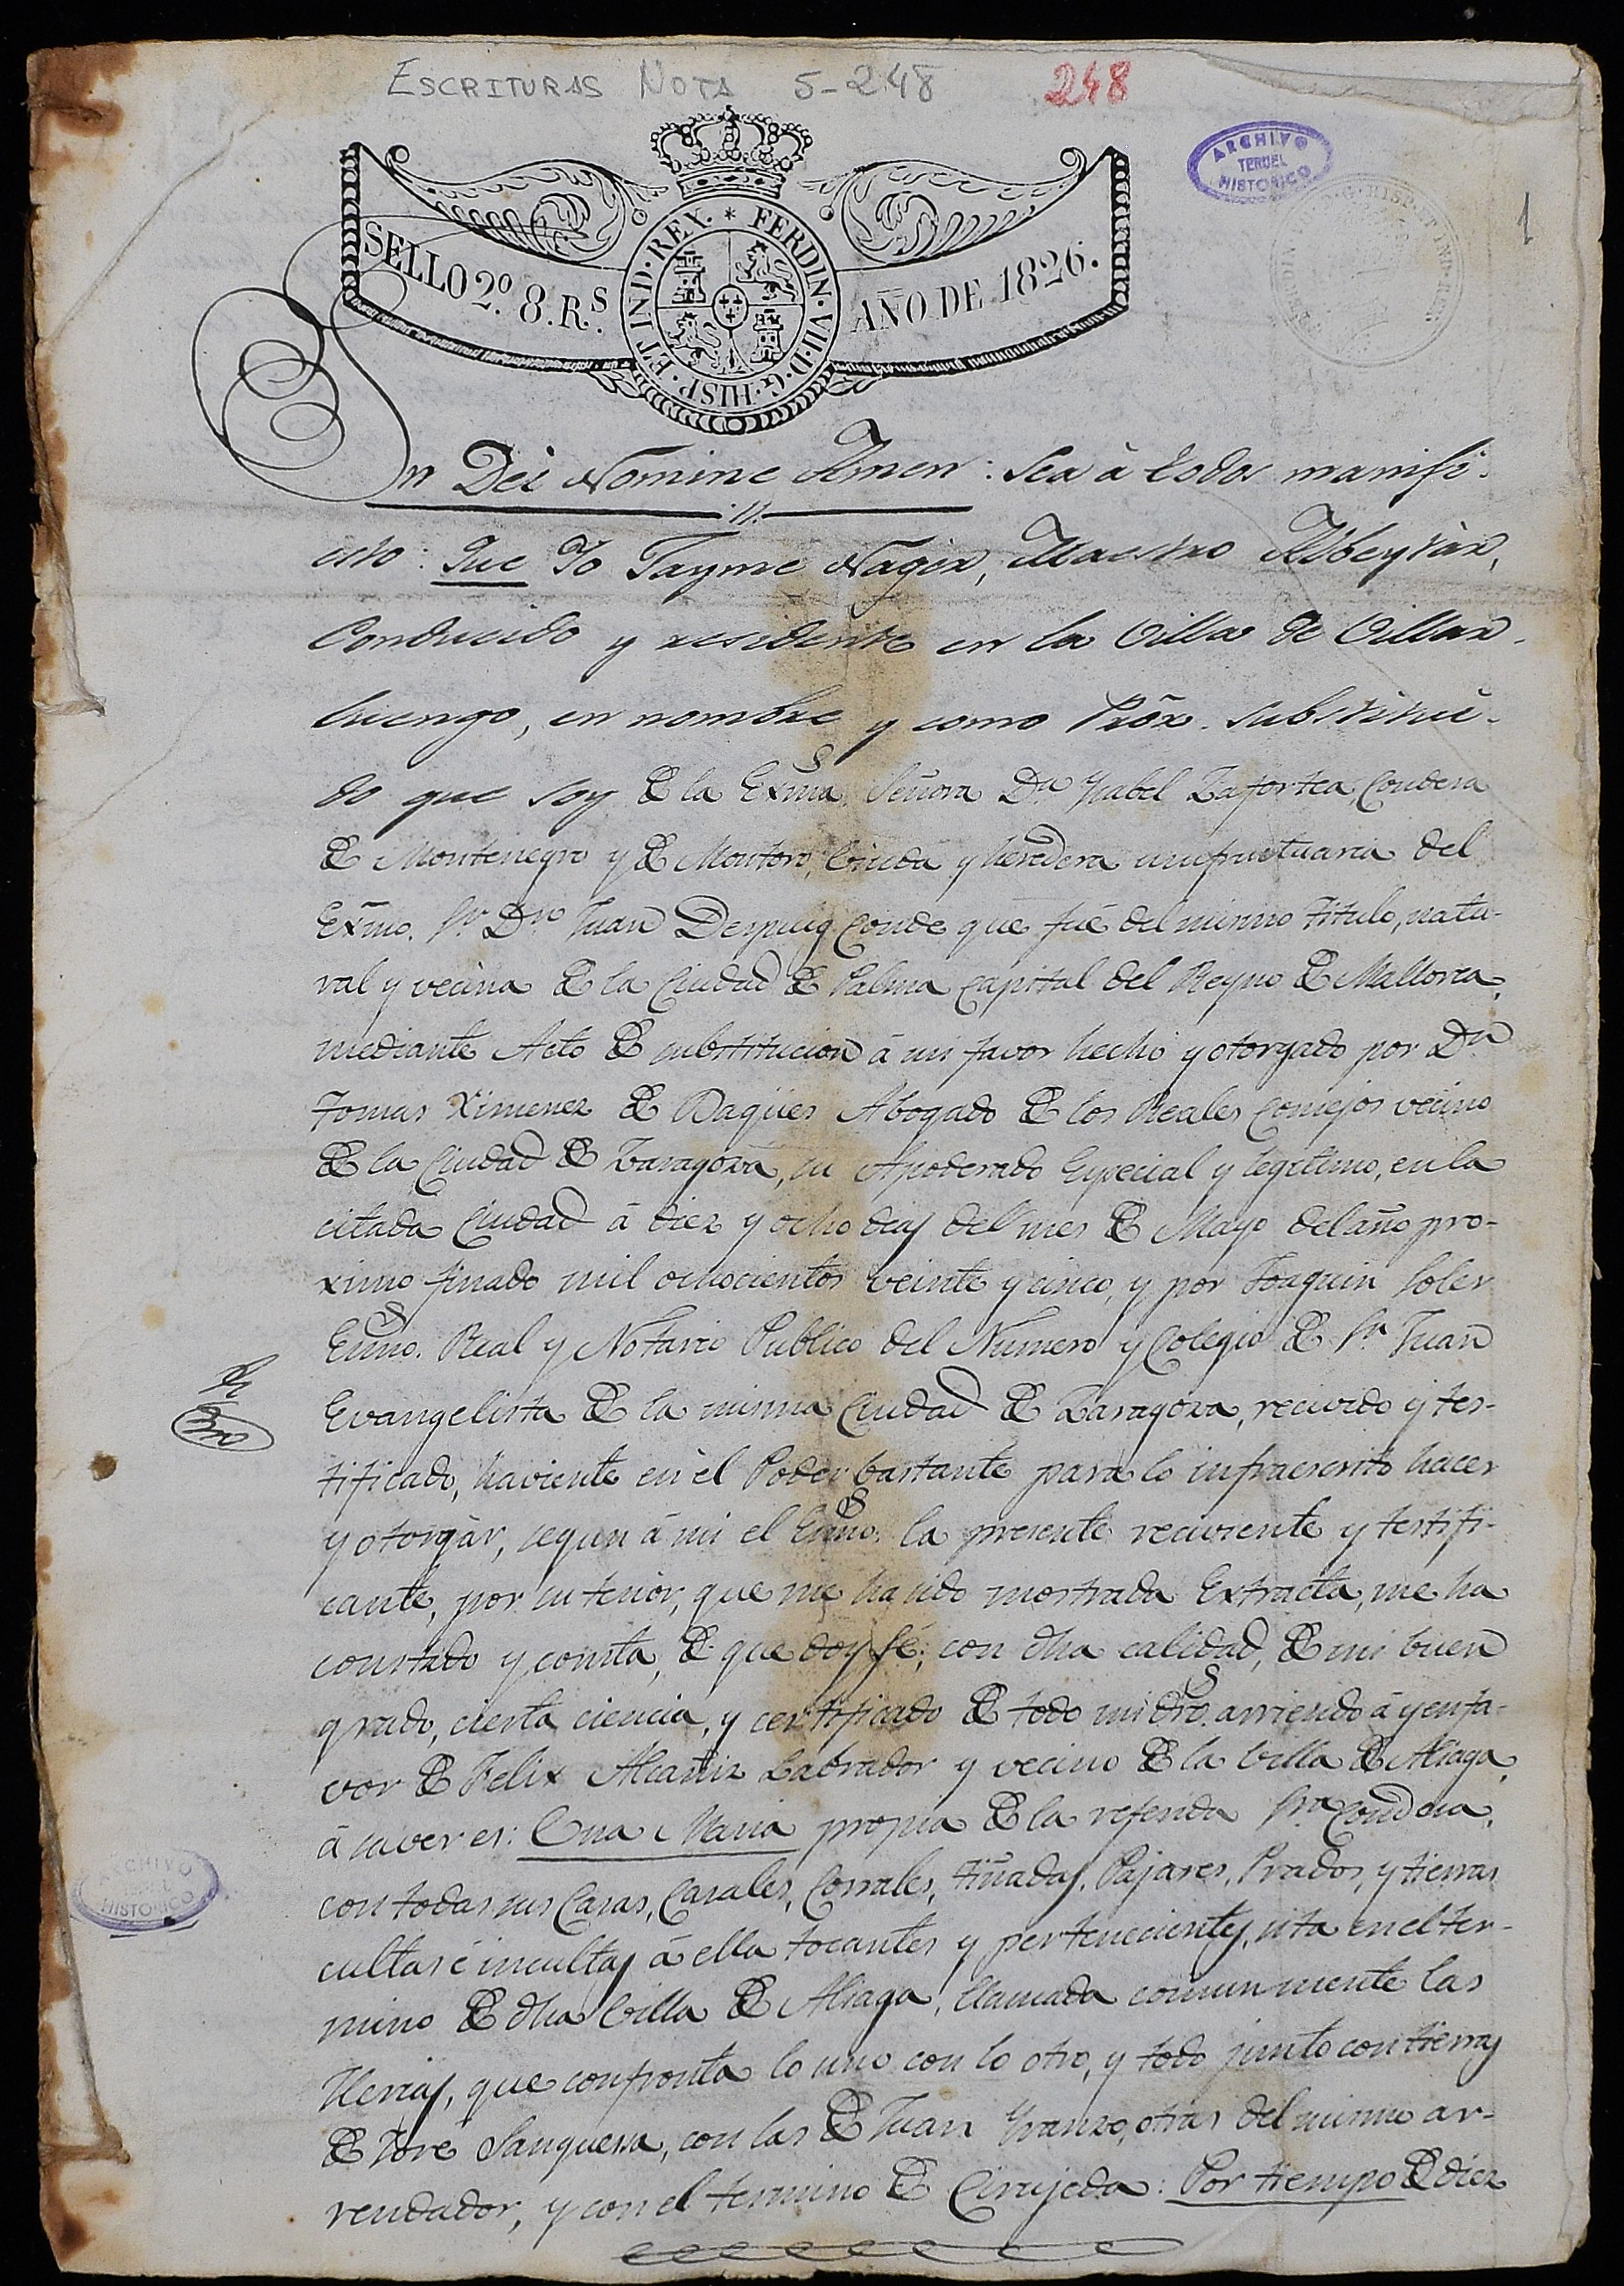 ESCRITURAS NOTA 5-248 248
ARCHIVO
TERUEL
HISTORICO
1
SELLO 2º. 8. Rs. FERDIN. VII. D. G. HISP. ET IND. REX. AÑO DE 1826.
In Dei Nomine Amen: Sea à todos manifi-
esto: Que Yo Jayme Nager, Maestro Albeytàr,
Conducido y residente en la Villa de Villar-
luengo, en nombre y como Prõr. substitui-
do que soy de la Exma. Señora Dª. Ysabel Zaforteza, Condesa
de Montenegro y de Montoro, Viuda y heredera usufructuaria del
Exmo. Sr. Dn. Juan Despuig Conde que fué del mismo Titulo, natu-
ral y vecina de la Ciudad de Palma Capital del Reyno de Mallorca,
mediante Acto de substitucion á mi favor hecho y otorgado por Dn.
Tomas Ximenez de Bagües Abogado de los Reales Consejos vecino
de la Ciudad de Zaragoza, su Apoderado Especial y legitimo, en la
citada Ciudad á diez y ocho dias del mes de Mayo del año pro-
ximo finado mil ochocientos veinte y cinco, y por Joaquin Soler
Essno. Real y Notario Publico del Numero y Colegio de Sn. Juan
Evangelista de la misma Ciudad de Zaragoza, recivido y tes-
tificado, haviente en èl Poder bastante para lo infraescrito hacer
y otorgàr, segun á mi el Essno. la presente reciviente y testifi-
cante, por su tenòr, que me ha sido mostrada Extracta, me ha
constado y consta, de que doy fé; con dha calidad, de mi buen
grado, cierta ciencia, y certificado de todo mi dro. arriendo á y en fa-
vor de Felix Alcañiz Labrador y vecino de la Villa de Aliaga,
á saver es: Una Masia propia de la referida Sra. Condesa,
con todas sus Casas, Casales, Corrales, Tiñadas, Pajares, Prados, y tierras
cultas é incultas á ella tocantes y pertenecientes, sita en el ter-
mino de dha Villa de Aliaga, llamada comunmente las
que confronta lo uno con lo otro, y todo junto con tierras
de Josè Sanguesa, con las de Juan Yranzo, otras del mismo ar-
rendador, y con el termino de Cirujeda: Por tiempo de diez
ARCHIVO
HISTORICO